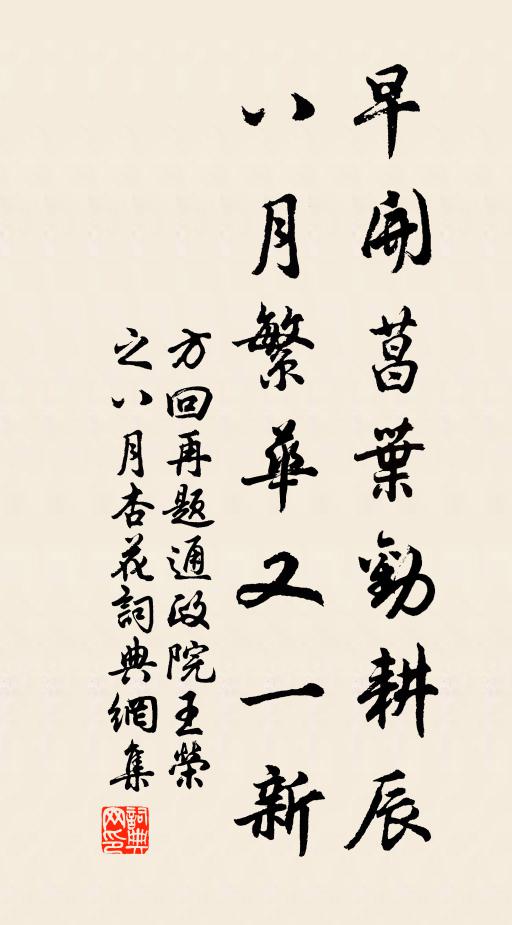 早開菖葉勸耕辰
八月繁華又一新
方回再题通政院王榮
之八月杏花詞典網集
詞典網印